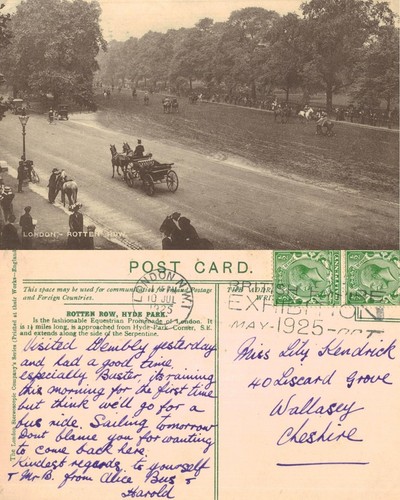 LONDON - ROTTEN ROW.
POST CARD.
This space may be used for communication
Postage
and Foreign Countries.
THE ADDRESS
ROTTEN ROW, HYDE PARK.
Is the fashionable Equestrian Promenade of London. It
is 1½ miles long, is approached from Hyde-Park Corner, S.E.
and extends along the side of the Serpentine.
The London Stereoscopic Company's Series (Printed at their Works—England)
LONDON
10 JUL
1925
EXHIBITION
MAY-1925-OCT
Visited Wembley yesterday
and had a good time
especially Buster, its raining
this morning for the first time
but think we'll go for a
bus ride. Sailing tomorrow
Dont blame you for wanting
to come back here.
Kindest regards to yourself
& Mr B. from Alice Bus &
Harold
Miss Lily Kendrick
40 Liscard Grove
Wallasey
Cheshire